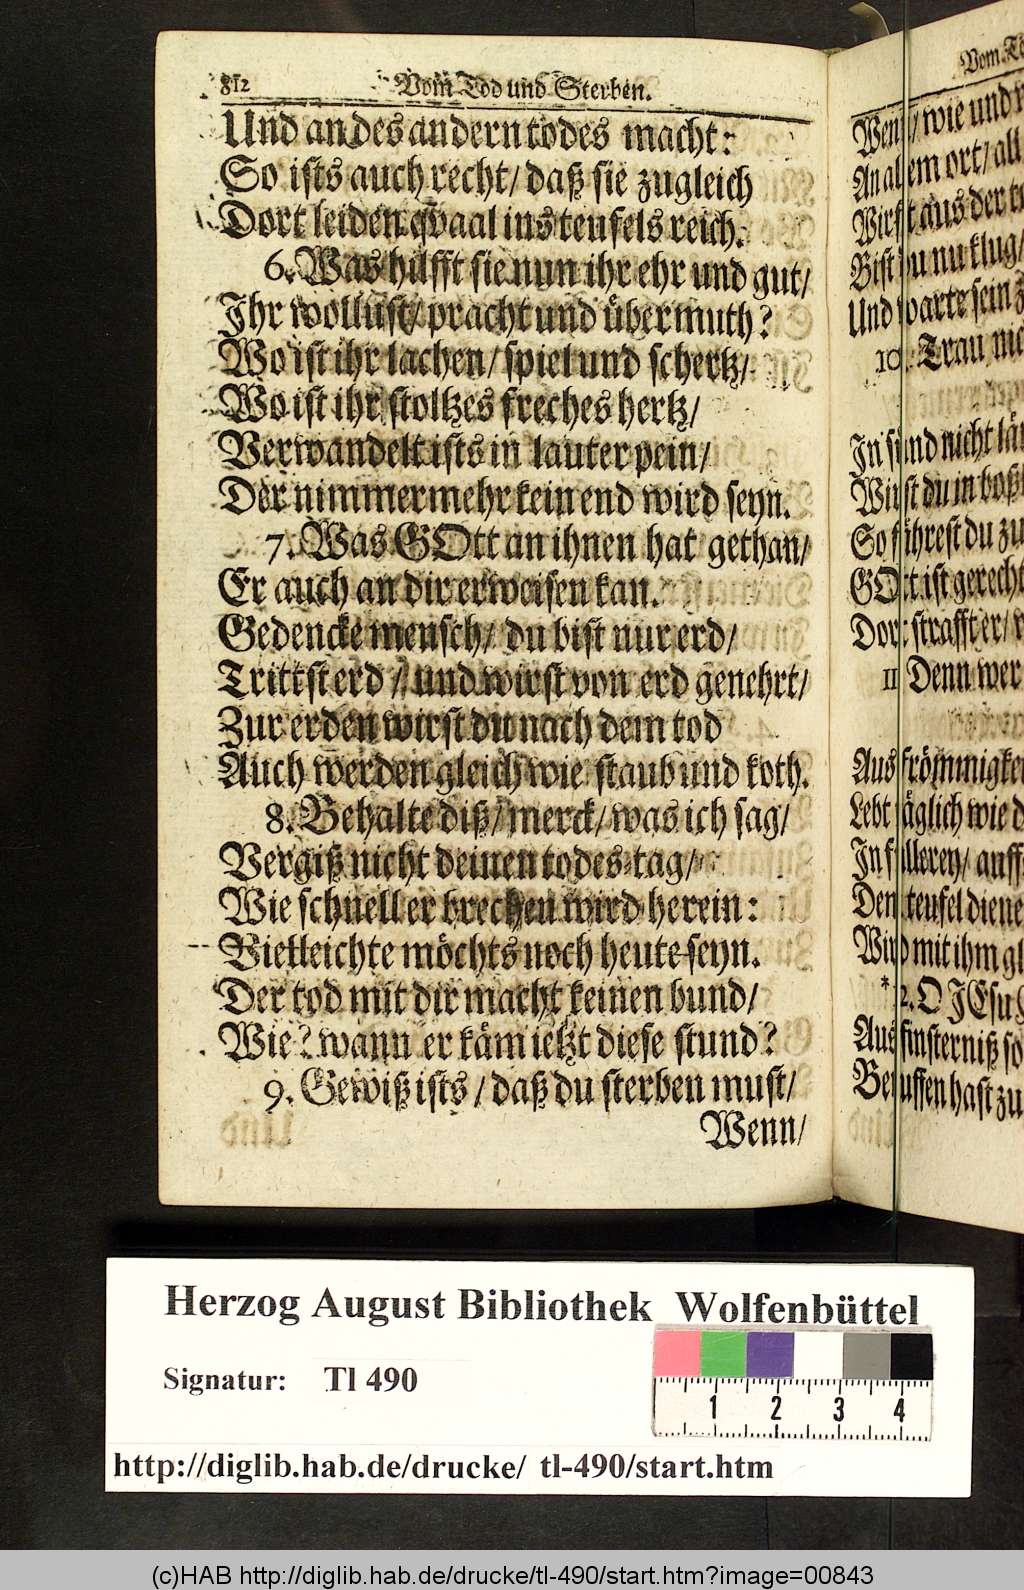 812 Vom Tod und Sterben.
Und an des andern todes macht:
So ists auch recht/ daß sie zugleich
Dort leiden qvaal ins teufels reich.
6. Was hilfft sie nun ihr ehr und gut/
Ihr wollust/ pracht und übermuth?
Wo ist ihr lachen/ spiel und schertz/
Wo ist ihr stoltzes freches hertz/
Verwandelt ists in lauter pein/
Der nimmermehr kein end wird seyn.
7. Was GOtt an ihnen hat gethan/
Er auch an dir erweisen kan.
Gedencke mensch/ du bist nur erd/
Trittst erd/ und wirst von erd genehrt/
Zur erden wirst du nach dem tod
Auch werden gleich wie staub und koth.
8. Behalte diß/ merck/ was ich sag/
Vergiß nicht deinen todes-tag/
Wie schnell er brechen wird herein:
Vielleichte möchts noch heute seyn.
Der tod mit dir macht keinen bund/
Wie? wann er käm ietzt diese stund?
9. Gewiß ists/ daß du sterben must/
Wenn/
Vom
Wenn/ wie und
An allem ort/ all
Wirst aus der
Bist du nu klug/
Und warte sein
10. Trau
In sünd nicht
Wirst du in
So fährest du zu
GOtt ist gerecht
Dort strafft er/
11 Denn wer
Aus frömmigkei
Lebt täglich wie
In füllerey/ auff
Dem teufel diene
Wird mit ihm
*12. O JEsu
Aus finsterniß so
Beruffen hast zu
Herzog August Bibliothek Wolfenbüttel
Signatur: Tl 490
1 2 3 4
http://diglib.hab.de/drucke/ tl-490/start.htm
(c)HAB http://diglib.hab.de/drucke/tl-490/start.htm?image=00843